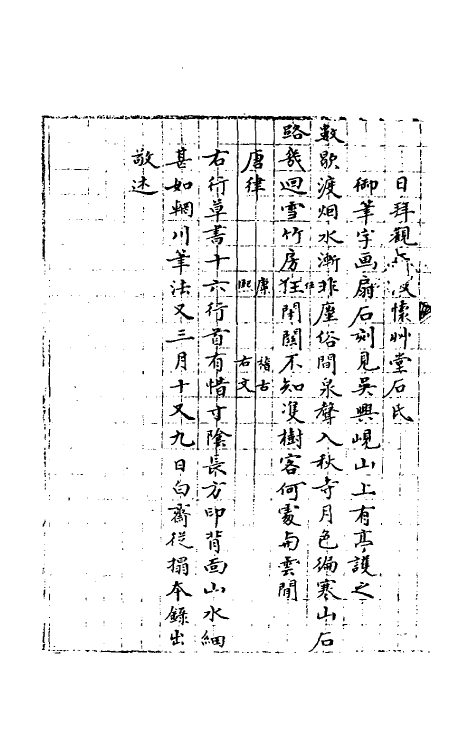 日拜觀懷艸堂石氏
御筆字画扇石刻見吳興峴山上有亭護之
數歇渡烟水漸非塵俗間泉聲入秋寺月色徧寒山石
路幾迴雪竹房閉關不知雙樹客何處與雲閒
唐律 康熙 稽古右文
右行草書十六行首有惜寸陰長方印背面山水細
甚如輞川筆法又三月十又九日白齋從搨本錄出
敬述